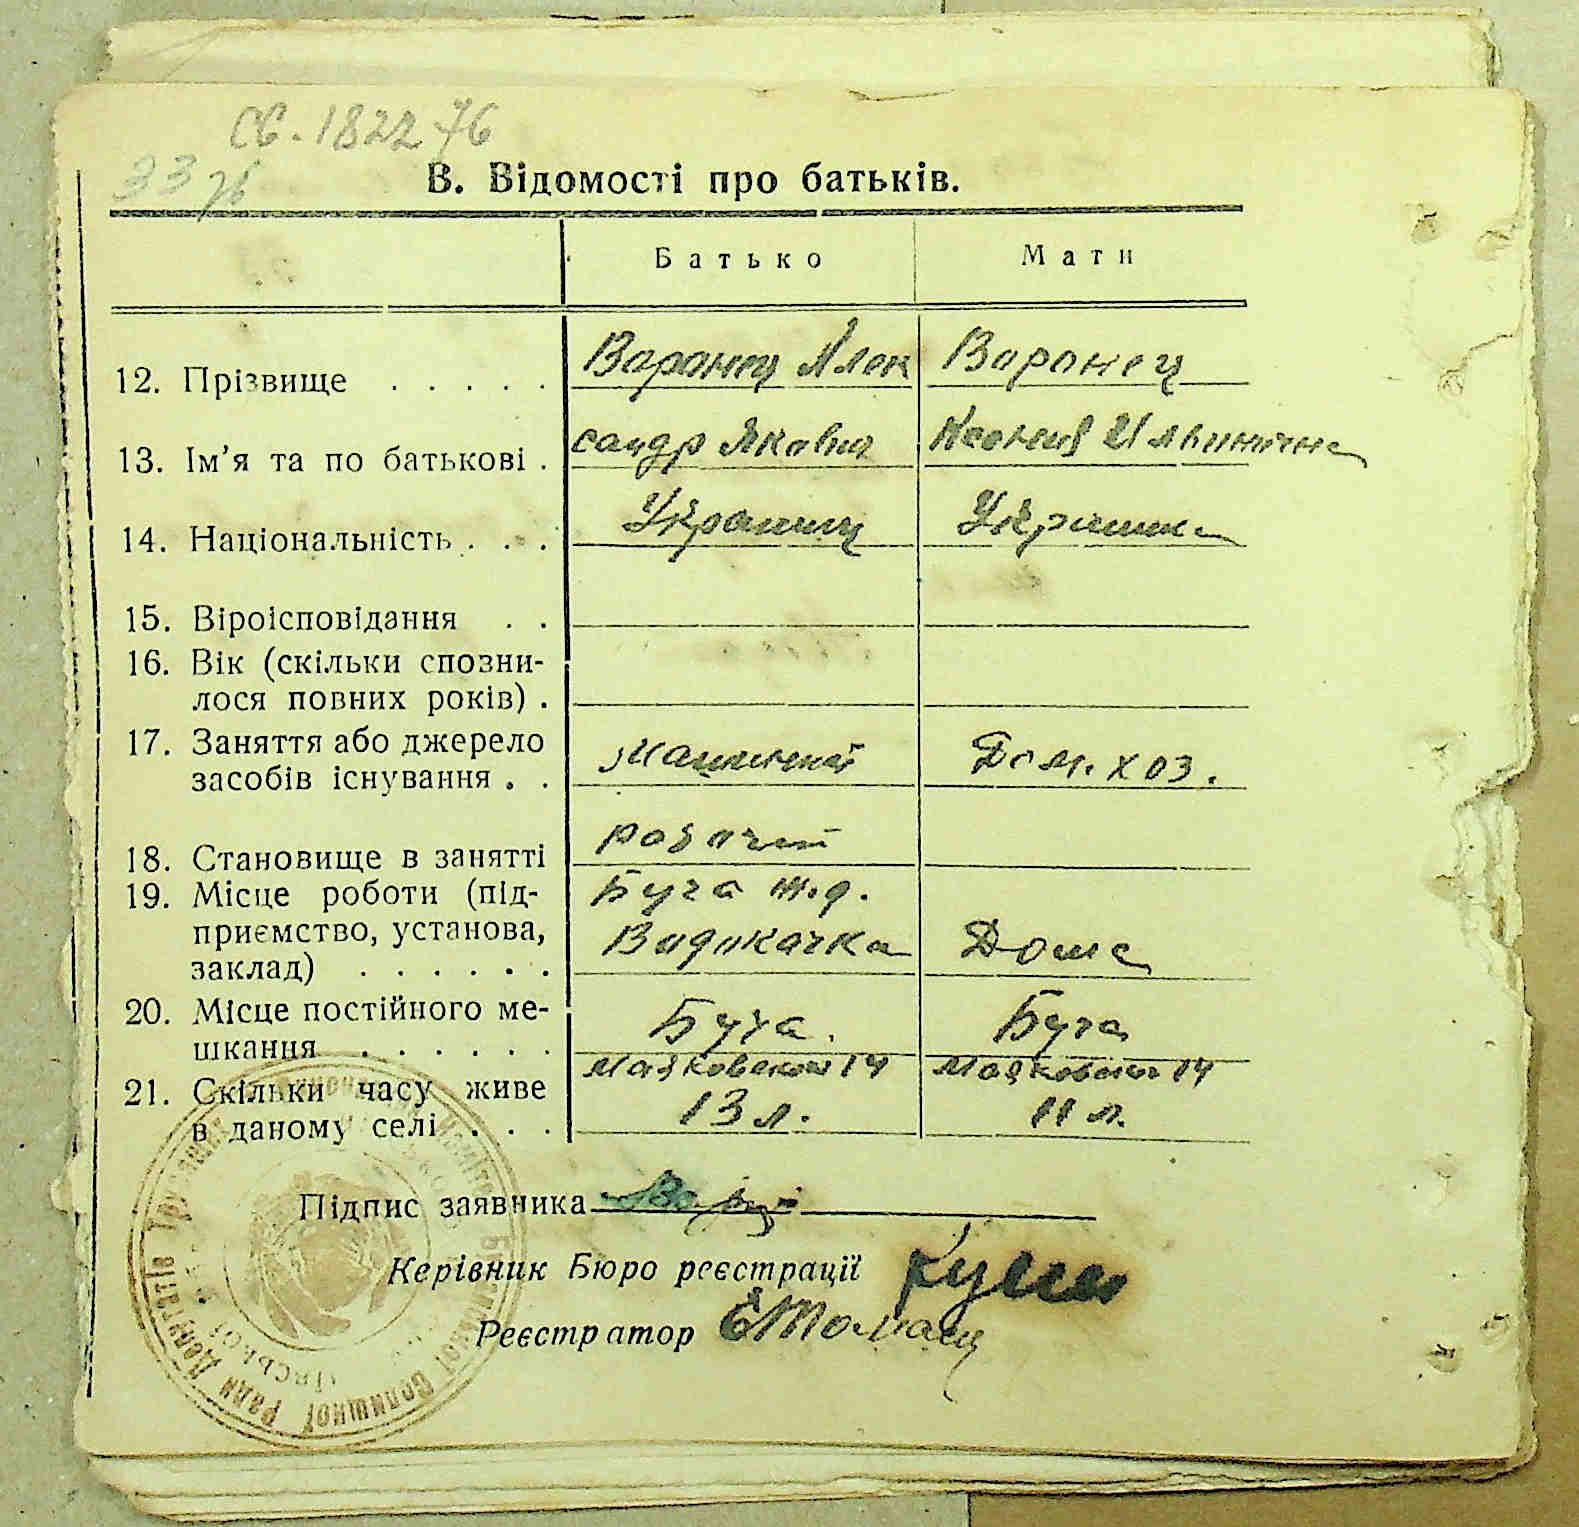 СС. 1822 76
33
В. Відомості про батьків.
Батько Мати
12. Прізвище . . . . . Воронец Алек Воронец
13. Ім'я та по батькові . сандр Яковл Ксения Ильинична
14. Національність . . . Украинец Украинка
15. Віроісповідання . .
16. Вік (скільки спозни-
лося повних років) .
17. Заняття або джерело
засобів існування . . Машинист Дом. хоз.
18. Становище в занятті рабочий
19. Місце роботи (під- Буча ж.д.
приємство, установа, Водокачка Дома
заклад) . . . . . .
20. Місце постійного ме- Буча. Буча
шкання . . . . . . Маяковской 14 Маяковской 14
21. Скільки часу живе 13 л. 11 л.
в даному селі . . .
Підпис заявника
Керівник Бюро реєстрації
Реєстратор
Селищної Ради Депутатів